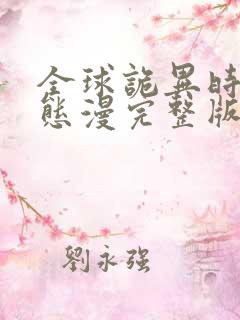 全球詭異時
態漫完整版
劉永強